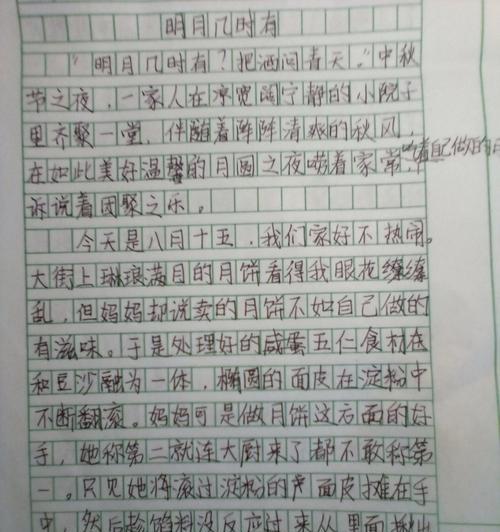 明月几时有
“明月几时有？把酒问青天。”中秋
节之夜，一家人在凉宽阔宁静的小院子
里齐聚一堂，伴随着阵阵清爽的秋风，
在如此美好温馨的月圆之夜唠着家常，吃着自己做好的月
诉说着团聚之乐。
今天是八月十五，我们家好不热闹。
大街上琳琅满目的月饼看得我眼花缭缭
乱，但妈妈却说卖的月饼不如自己做的
有滋味。于是处理好的咸蛋五仁食材在
和豆沙融为一体，椭圆的面皮在淀粉中
不断翻滚。妈妈可是做月饼这方面的好
手，她称第二就连大厨来了都不敢称第
一。只见她将滚过淀粉的面皮摊在手
中，然后趁馅料没反应过来从里面揪